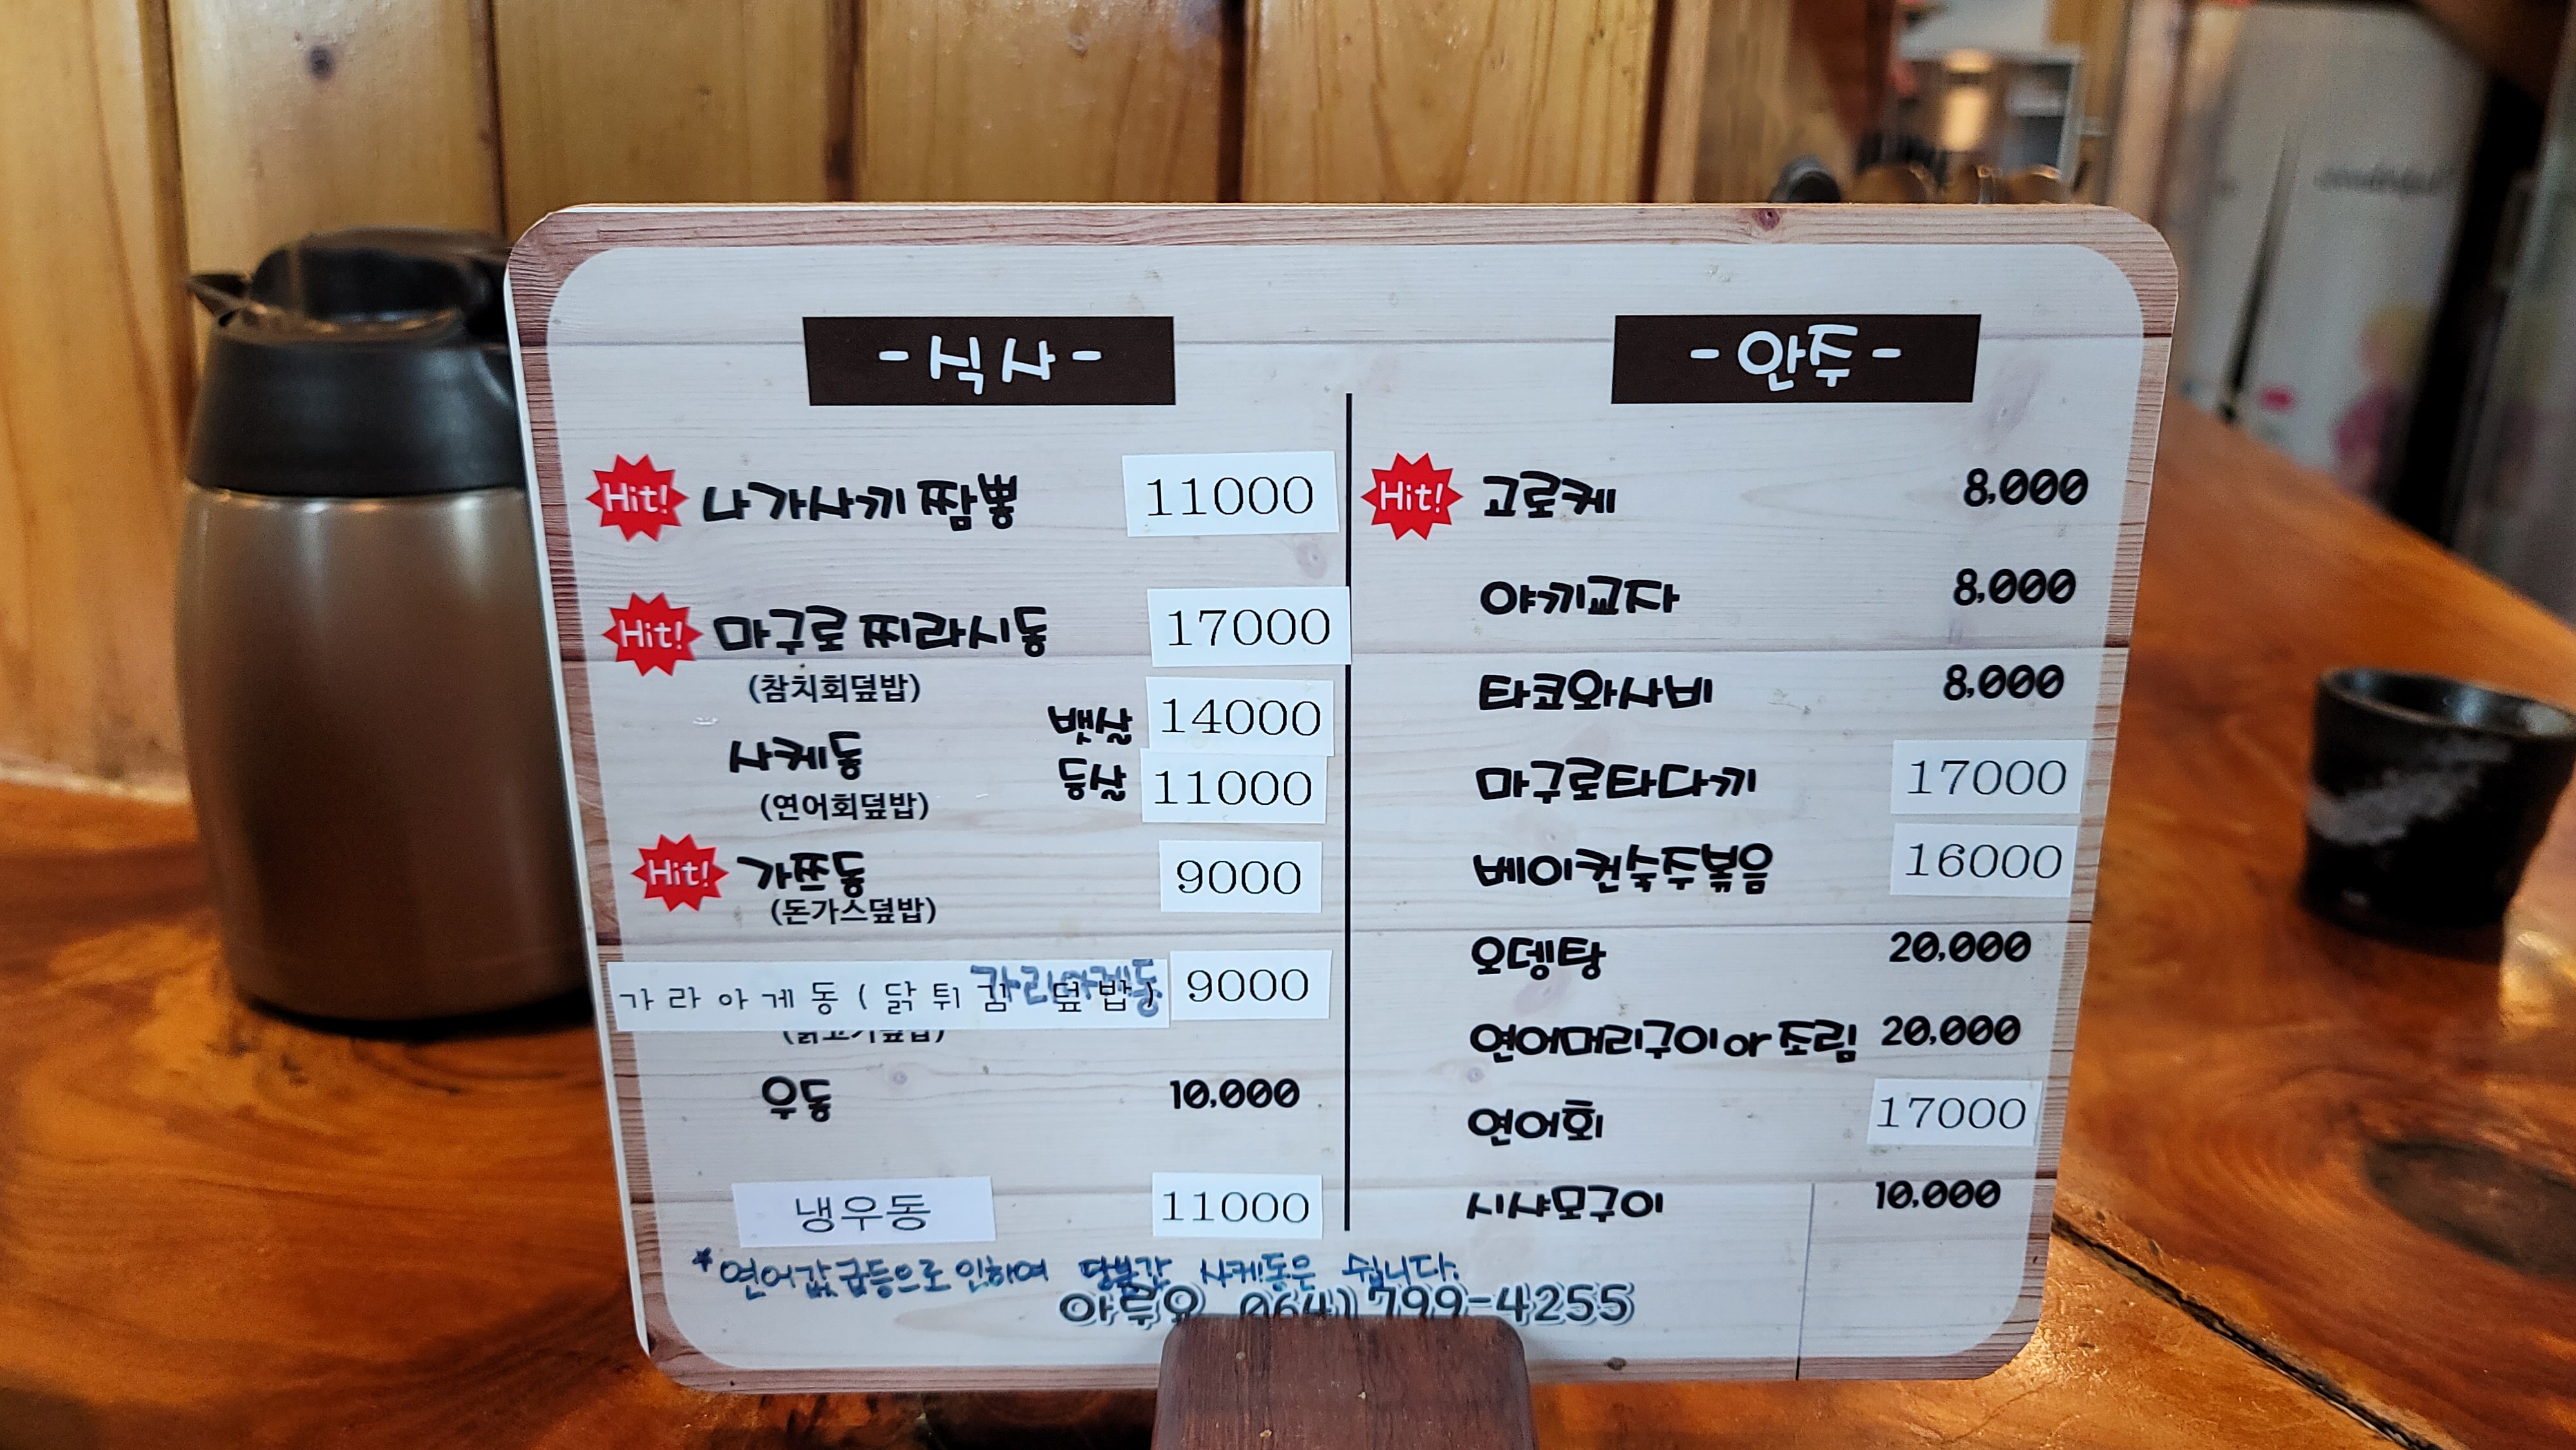 - 식사 -
Hit! 나가사끼 짬뽕 11000
Hit! 마구로 찌라시동 17000
(참치회덮밥)
뱃살 14000
사케동
등살 11000
(연어회덮밥)
Hit! 가쯔동 9000
(돈가스덮밥)
가라아게동(닭튀김 덮밥) 9000
가라아게동
(닭고기덮밥)
우동 10,000
냉우동 11000
- 안주 -
Hit! 고로케 8,000
야끼교자 8,000
타코와사비 8,000
마구로타다끼 17000
베이컨숙주볶음 16000
오뎅탕 20,000
연어머리구이 or 조림 20,000
연어회 17000
시샤모구이 10,000
*연어값 급등으로 인하여 당분간 사케동은 쉽니다.
아루요 064) 799-4255